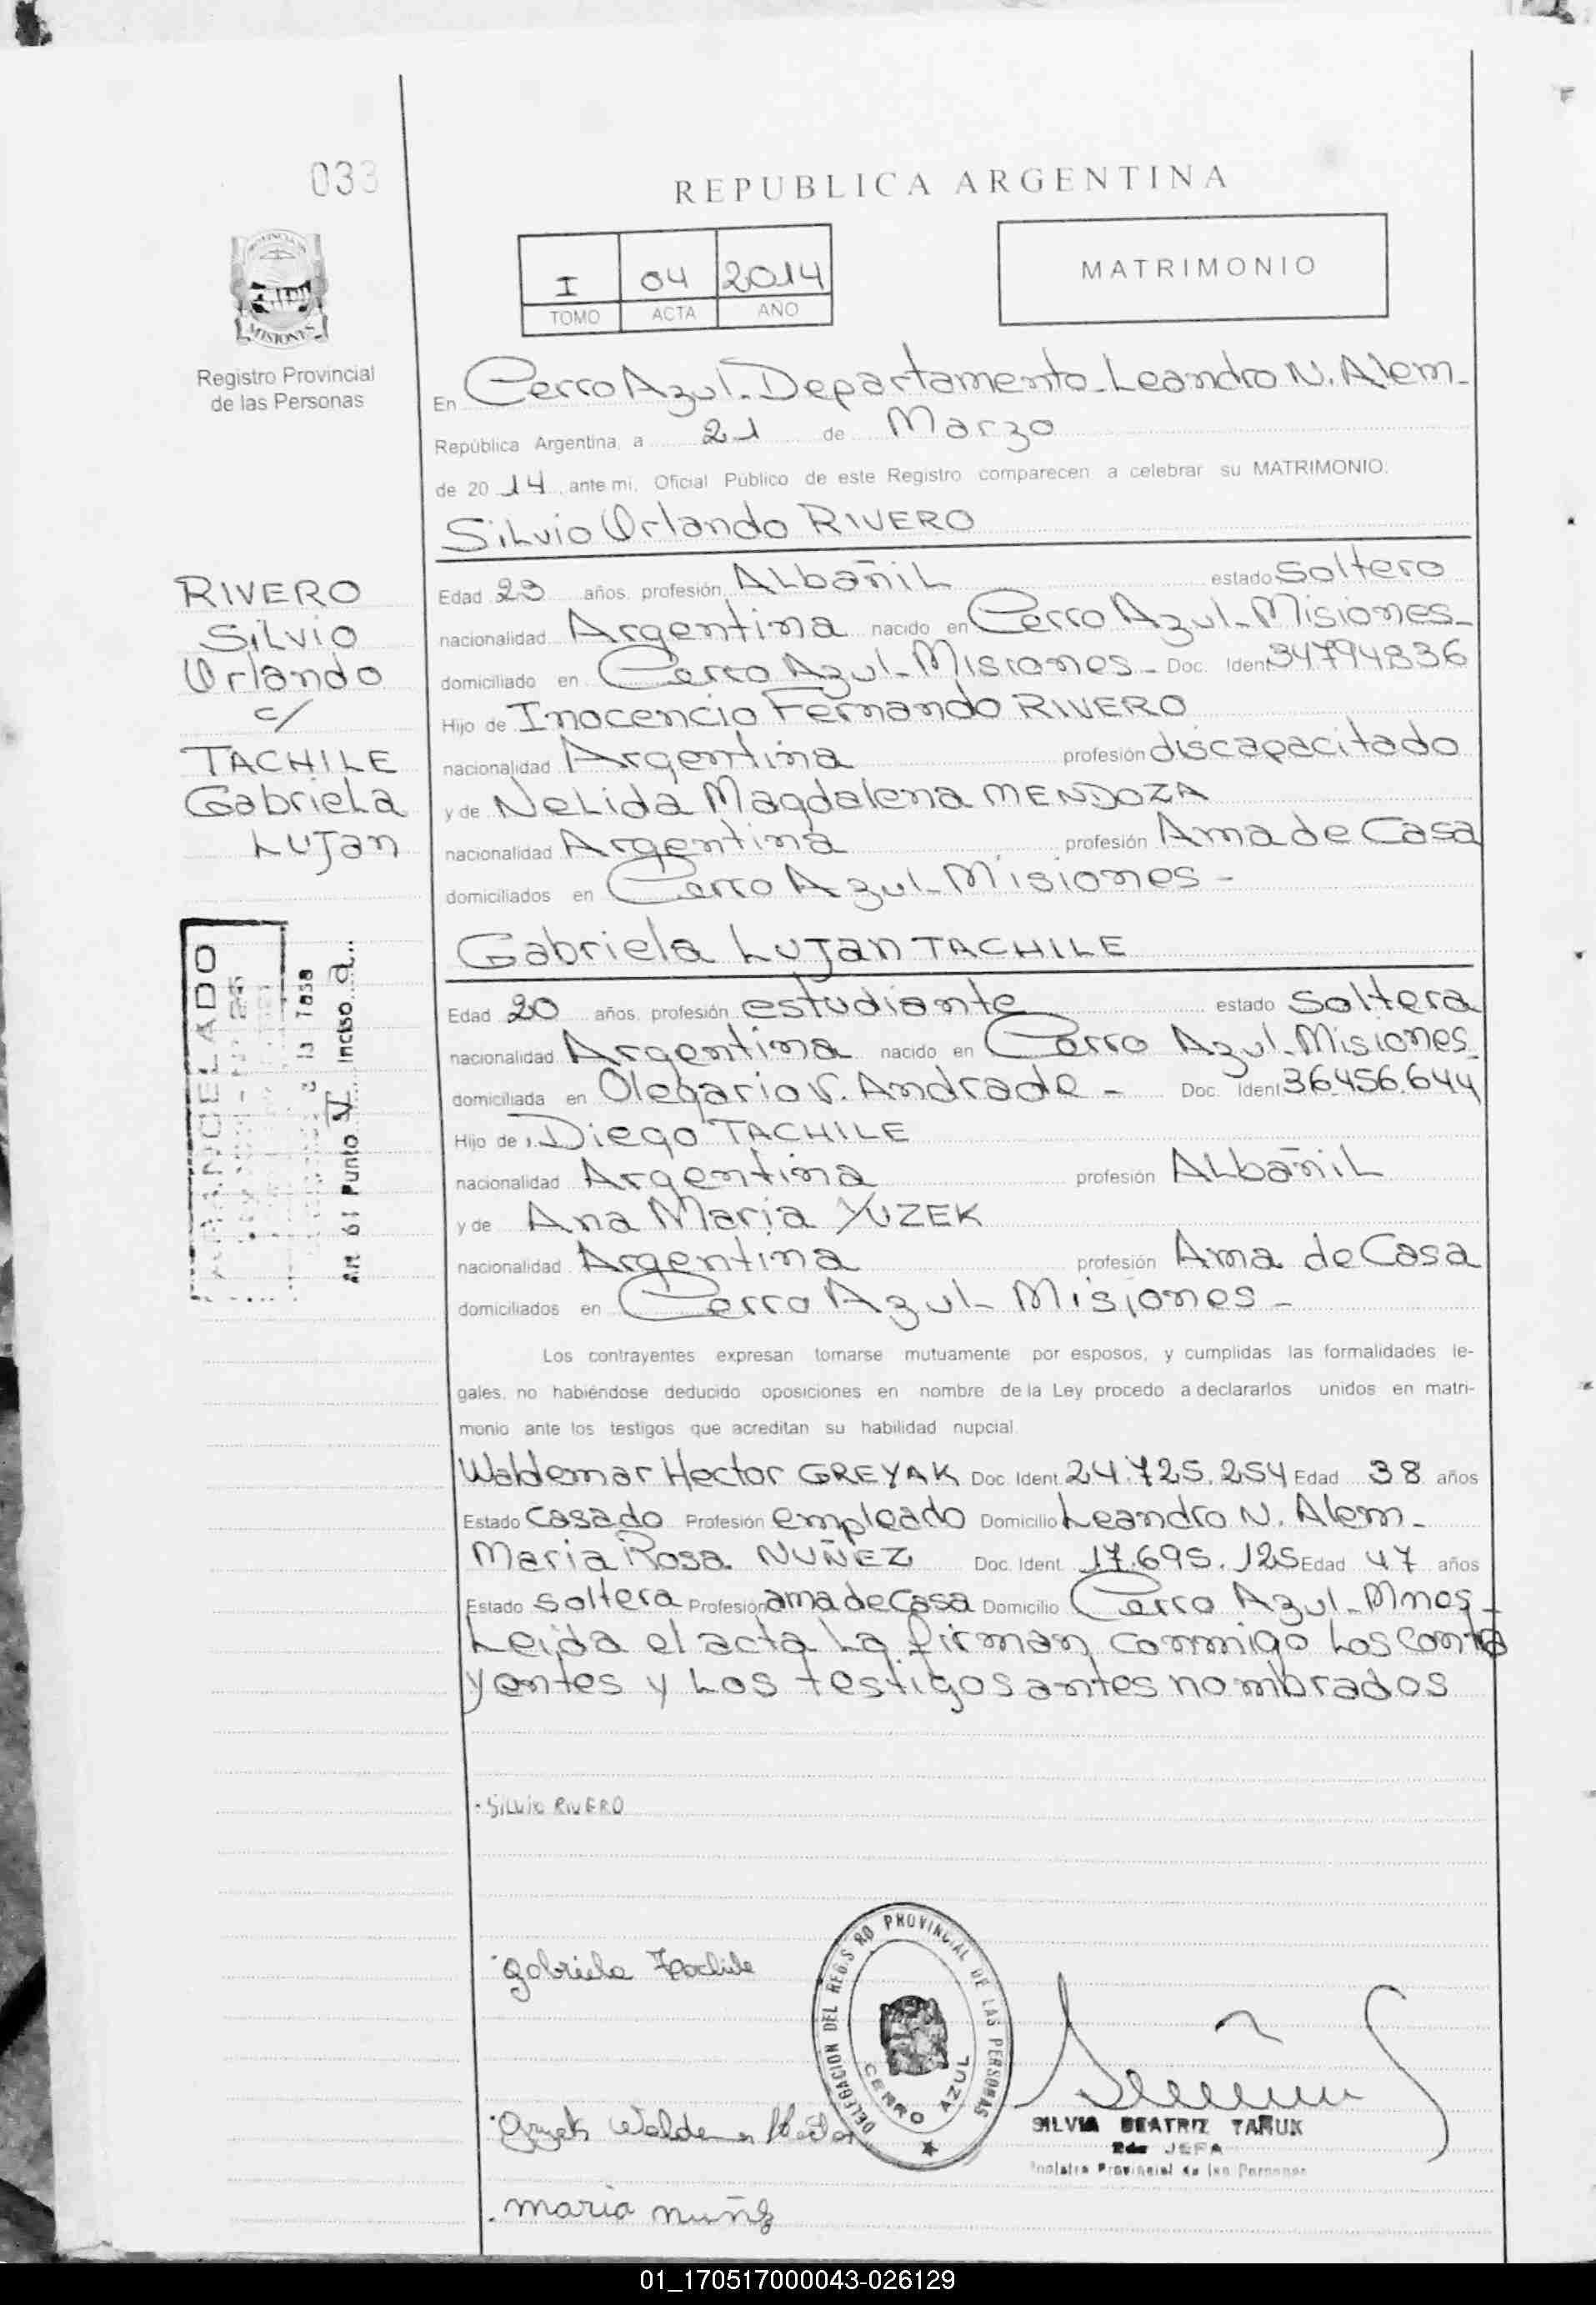 033
REPUBLICA ARGENTINA
I 04 2014
TOMO ACTA AÑO
MATRIMONIO
MISIONES
Registro Provincial
de las Personas
En Cerro Azul - Departamento - Leandro N. Alem -
República Argentina, a 21 de Marzo
de 2014, ante mi, Oficial Público de este Registro comparecen a celebrar su MATRIMONIO:
Silvio Orlando RIVERO
RIVERO
Silvio
Orlando
c/
TACHILE
Gabriela
Lujan
Edad 23 años, profesión Albañil estado Soltero
nacionalidad Argentina nacido en Cerro Azul - Misiones -
domiciliado en Cerro Azul - Misiones - Doc. Ident 34794836
Hijo de Inocencio Fernando RIVERO
nacionalidad Argentina profesión discapacitado
y de Nelida Magdalena MENDOZA
nacionalidad Argentina profesión Ama de Casa
domiciliados en Cerro Azul - Misiones -
Gabriela Lujan TACHILE
Edad 20 años, profesión estudiante estado Soltera
nacionalidad Argentina nacido en Cerro Azul - Misiones -
domiciliada en Olegario V. Andrade - Doc. Ident 36.456.644
Hijo de Diego TACHILE
nacionalidad Argentina profesión Albañil
y de Ana Maria YUZEK
nacionalidad Argentina profesión Ama de Casa
domiciliados en Cerro Azul - Misiones -
a la Tasa
Art 61 Punto V Inciso a
Los contrayentes expresan tomarse mutuamente por esposos, y cumplidas las formalidades le-
gales, no habiéndose deducido oposiciones en nombre de la Ley procedo a declararlos unidos en matri-
monio ante los testigos que acreditan su habilidad nupcial.
Waldemar Hector GREYAK Doc. Ident. 24.725.254 Edad 38 años
Estado Casado Profesión empleado Domicilio Leandro N. Alem -
Maria Rosa NUÑEZ Doc. Ident. 17.695.125 Edad 47 años
Estado Soltera Profesión ama de Casa Domicilio Cerro Azul - Mnes -
Leida el acta La firman conmigo Los contra
yentes y Los testigos antes nombrados
Silvio RIVERO
Gabriela Tachile
DELEGACION DEL REGISTRO PROVINCIAL DE LAS PERSONAS
CERRO AZUL
SILVIA BEATRIZ TAÑUK
2da JEFA
Registro Provincial de las Personas
maria nuñez
01_170517000043-026129